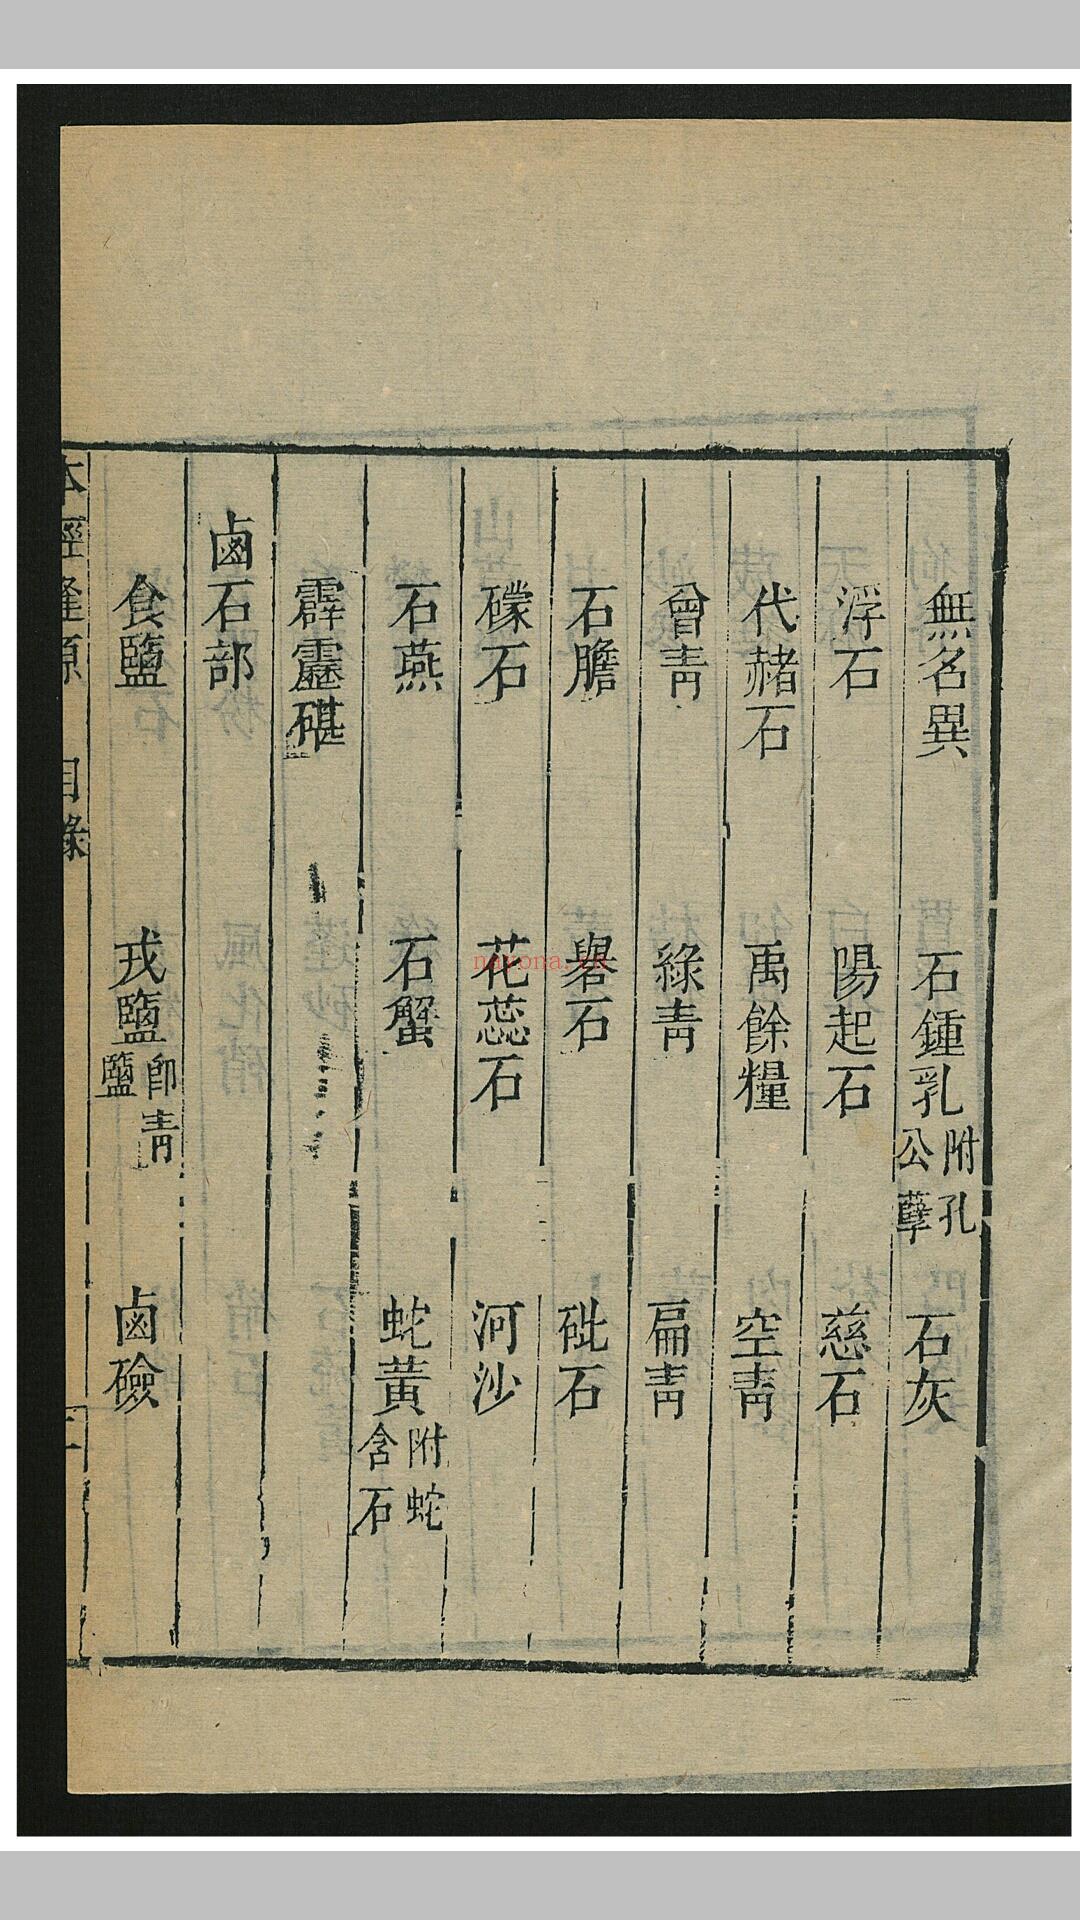 無名異 石鍾乳附孔公孽 石灰
浮石 陽起石 慈石
代赭石 禹餘糧 空青
曾青 綠青 扁青
石膽 礜石 砒石
礞石 花蕊石 河沙
石燕 石蟹 蛇黃附蛇含石
霹靂碪
鹵石部
食鹽 戎鹽即青鹽 鹵礆
本經逢原 目錄
nayona.cn